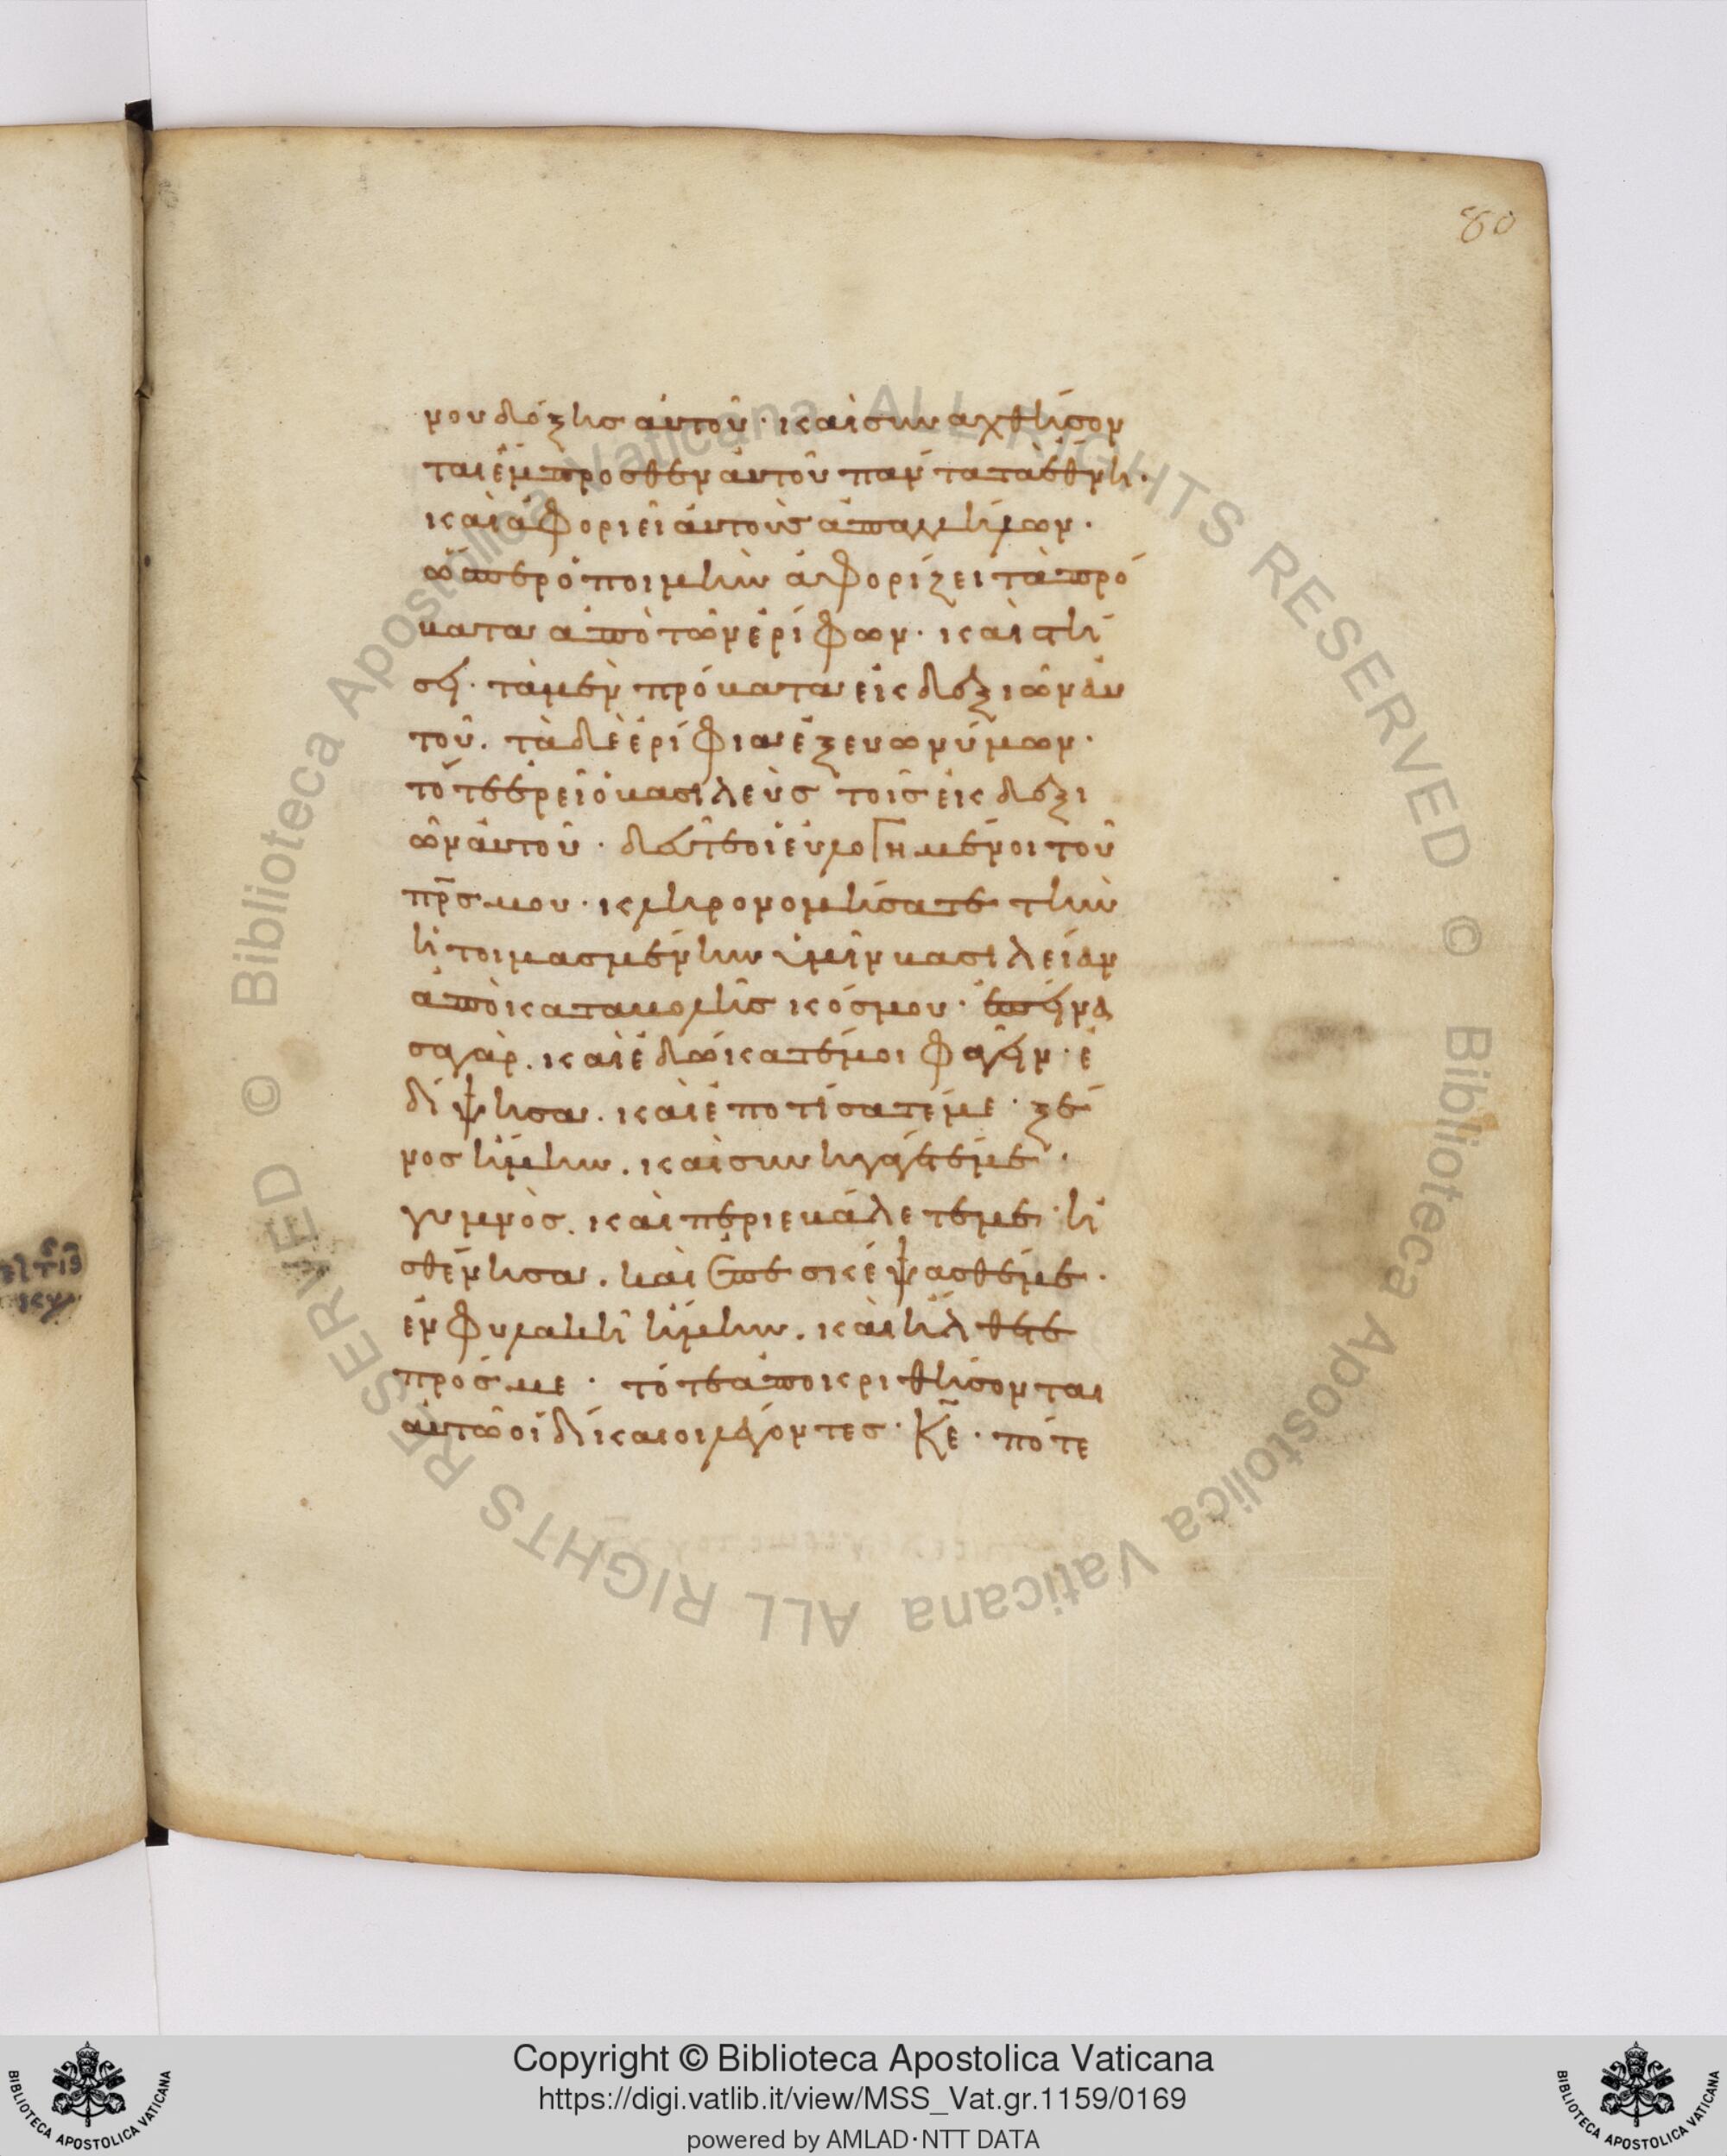 80
νου δόξης αὐτοῦ· καὶ συναχθήσον
ται ἔμπροσθεν αὐτοῦ πάντα τὰ ἔθνη·
καὶ ἀφοριεῖ αὐτοὺς ἀπαλλήλων·
ὥσπερ ὁ ποιμὴν ἀφορίζει τὰ πρό
βατα ἀπὸ τῶν ἐρίφων· καὶ στή
σει· τὰ μὲν πρόβατα εἰς δεξιῶν αὐ
τοῦ. τὰ δὲ ἐρίφια ἐξ εὐωνύμων·
τότε ἐρεῖ ὁ βασιλεὺς τοῖς εἰς δεξι
ῶν αὐτοῦ· δεῦτε οἱ εὐλογημένοι τοῦ
πρς μου· κληρονομήσατε τὴν
ἡτοιμασμένην ὑμῖν βασιλείαν
ἀπὸ καταβολῆς κόσμου· ἐπείνα
σα γὰρ. καὶ ἐδώκατέ μοι φαγεῖν· ἐ
δίψησα. καὶ ἐποτίσατέ με· ξέ
νος ἤμην. καὶ συνηγάγετέ με·
γυμνὸς. καὶ περιεβάλετέ με· ἠ
σθένησα. καὶ ἐπεσκέψασθέ με·
ἐν φυλακῆ ἤμην. καὶ ἤλθετε
πρός με· τότε ἀποκριθήσονται
αὐτῶ οἱ δίκαιοι λέγοντες· Κε· πότε
© Biblioteca Apostolica Vaticana ALL RIGHTS RESERVED © Biblioteca Apostolica Vaticana ALL RIGHTS RESERVED
BIBLIOTECA APOSTOLICA VATICANA
Copyright © Biblioteca Apostolica Vaticana
https://digi.vatlib.it/view/MSS_Vat.gr.1159/0169
powered by AMLAD·NTT DATA
BIBLIOTECA APOSTOLICA VATICANA